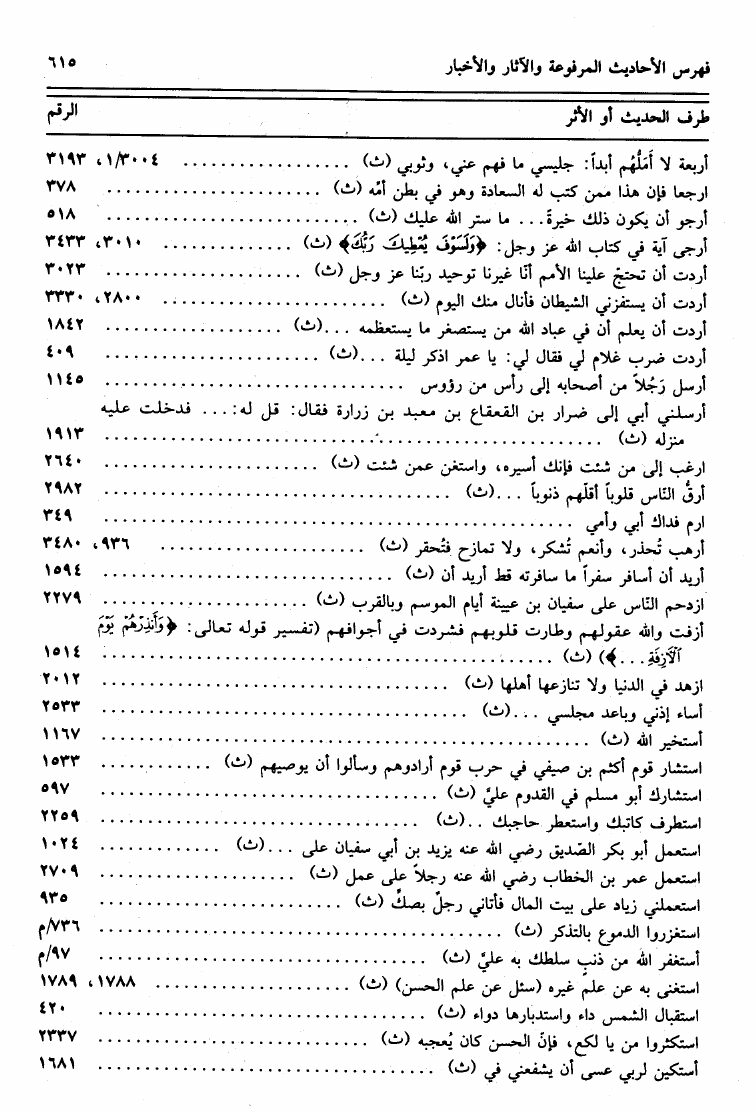 فهرس الأحاديث المرفوعة والآثار والأخبار ٦١٥
طرف الحديث أو الأثر الرقم
أربعة لا أَمَلُّهُم أبداً: جليسي ما فهم عني، وثوبي (ث) .................. ١/٣٠٠٤، ٣١٩٣
ارجعا فإن هذا ممن كتب له السعادة وهو في بطن أمّه (ث) .................. ٣٧٨
أرجو أن يكون ذلك خيرةً... ما ستر الله عليك (ث) .................. ٥١٨
أرجى آية في كتاب الله عز وجل: ﴿وَلَسَوْفَ يُعْطِيكَ رَبُّكَ﴾ (ث) .................. ٣٠١٠، ٣٤٣٣
أردت أن تحتجّ علينا الأمم أنّا غيرنا توحيد ربّنا عز وجل (ث) .................. ٣٠٢٣
أردت أن يستفزني الشيطان فأنال منك اليوم (ث) .................. ٢٨٠٠، ٣٣٣٠
أردت أن يعلم أن في عباد الله من يستصغر ما يستعظمه ...(ث) .................. ١٨٤٢
أردت ضرب غلام لي فقال لي: يا عمر اذكر ليلة ...(ث) .................. ٤٠٩
أرسل رَجُلاً من أصحابه إلى رأس من رؤوس .................. ١١٤٥
أرسلني أبي إلى ضرار بن القعقاع بن معبد بن زرارة فقال: قل له:... فدخلت عليه
منزله (ث) .................. ١٩١٣
ارغب إلى من شئت فإنك أسيره، واستغن عمن شئت (ث) .................. ٢٦٤٠
أرقُّ النّاس قلوباً أقلّهم ذنوباً ...(ث) .................. ٢٩٨٢
ارم فداك أبي وأمي .................. ٣٤٩
أرهب تُحذر، وأنعم تُشكر، ولا تمازح فتُحقر (ث) .................. ٩٣٦، ٣٤٨٠
أريد أن أسافر سفراً ما سافرته قط أريد أن (ث) .................. ١٥٩٤
ازدحم النّاس على سفيان بن عيينة أيام الموسم وبالقرب (ث) .................. ٢٢٧٩
أزفت والله عقولهم وطارت قلوبهم فشردت في أجوافهم (تفسير قوله تعالى: ﴿وَأَنذِرْهُمْ يَوْمَ
الْآزِفَةِ...﴾) (ث) .................. ١٥١٤
ازهد في الدنيا ولا تنازعها أهلها (ث) .................. ٢٠١٢
أساء إذني وباعد مجلسي ...(ث) .................. ٢٥٣٣
أستخير الله (ث) .................. ١١٦٧
استشار قوم أكثم بن صيفي في حرب قوم أرادوهم وسألوا أن يوصيهم (ث) .................. ١٥٣٣
استشارك أبو مسلم في القدوم عليَّ (ث) .................. ٥٩٧
استطرف كاتبك واستعطر حاجبك ..(ث) .................. ٢٢٥٩
استعمل أبو بكر الصّديق رضي الله عنه يزيد بن أبي سفيان على ...(ث) .................. ١٠٢٤
استعمل عمر بن الخطاب رضي الله عنه رجلاً على عمل (ث) .................. ٢٧٠٩
استعملني زياد على بيت المال فأتاني رجلٌ بصكٍّ (ث) .................. ٩٣٥
استغزروا الدموع بالتذكر (ث) .................. ٧٣٦/م
أستغفر الله من ذنبٍ سلطك به عليَّ (ث) .................. ٩٧/م
استغنى به عن علم غيره (سئل عن علم الحسن) (ث) .................. ١٧٨٨، ١٧٨٩
استقبال الشمس داء واستدبارها دواء (ث) .................. ٤٢٠
استكثروا من يا لكع، فإنّ الحسن كان يُعجبه (ث) .................. ٢٣٣٧
أستكين لربي عسى أن يشفعني في (ث) .................. ١٦٨١